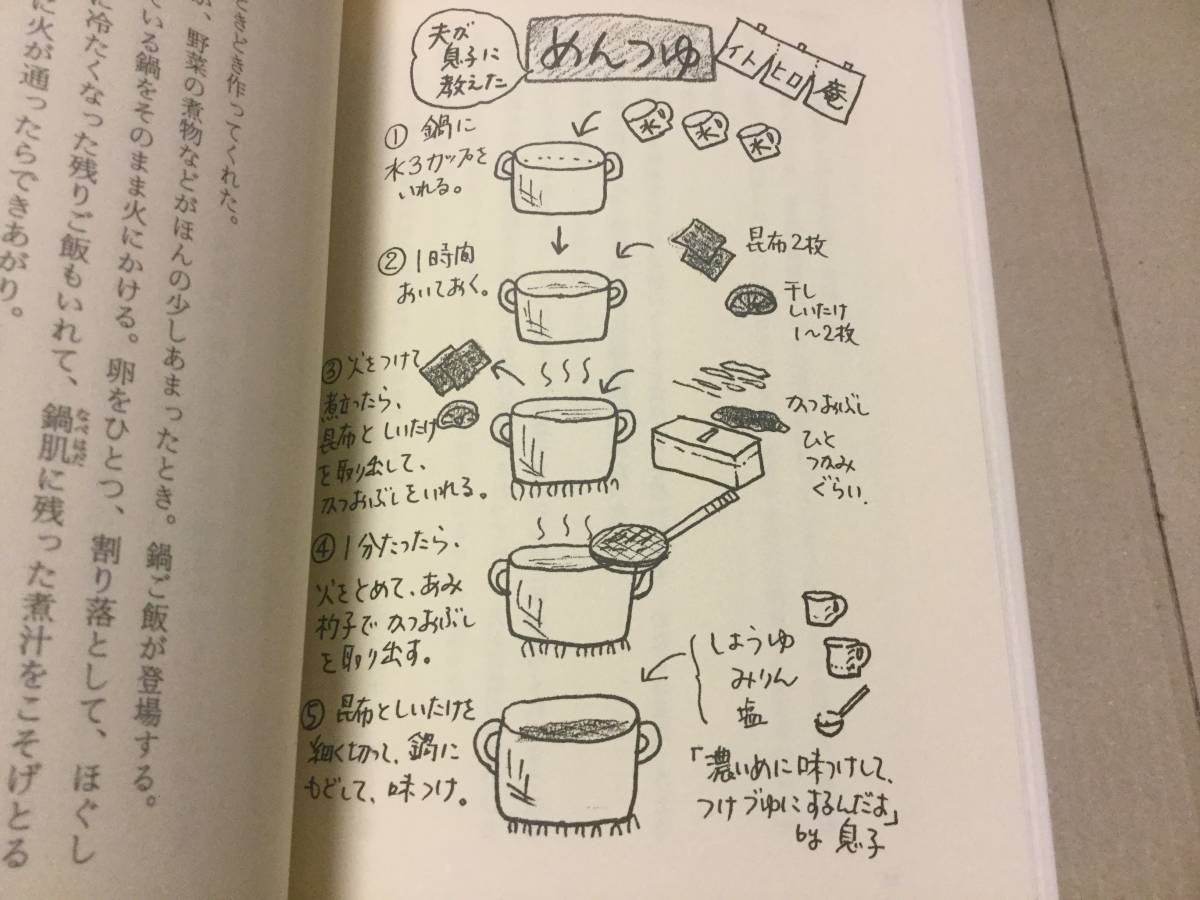 ときどき作ってくれた。
、野菜の煮物などがほんの少しあまったとき。鍋ご飯が登場する。
ている鍋をそのまま火にかける。卵をひとつ、割り落として、ほぐし
に冷たくなった残りご飯もいれて、鍋肌に残った煮汁をこそげとる
なべはだ
に火が通ったらできあがり。
夫が
息子に
教えた
めんつゆ
イトヒロ庵
①鍋に
水3カップを
いれる。
水
水
水
②1時間
おいておく。
昆布2枚
干し
しいたけ
1〜2枚
③火をつけて
煮立ったら、
昆布としいたけ
を取り出して、
かつおぶしをいれる。
かつおぶし
ひと
つかみ
ぐらい.
④1分たったら、
火をとめて、あみ
杓子でかつおぶし
を取り出す。
しょうゆ
みりん
塩
⑤昆布としいたけを
細く切って、鍋に
もどして、味つけ。
「濃いめに味つけして、
つけづゆにするんだよ」
by 息子